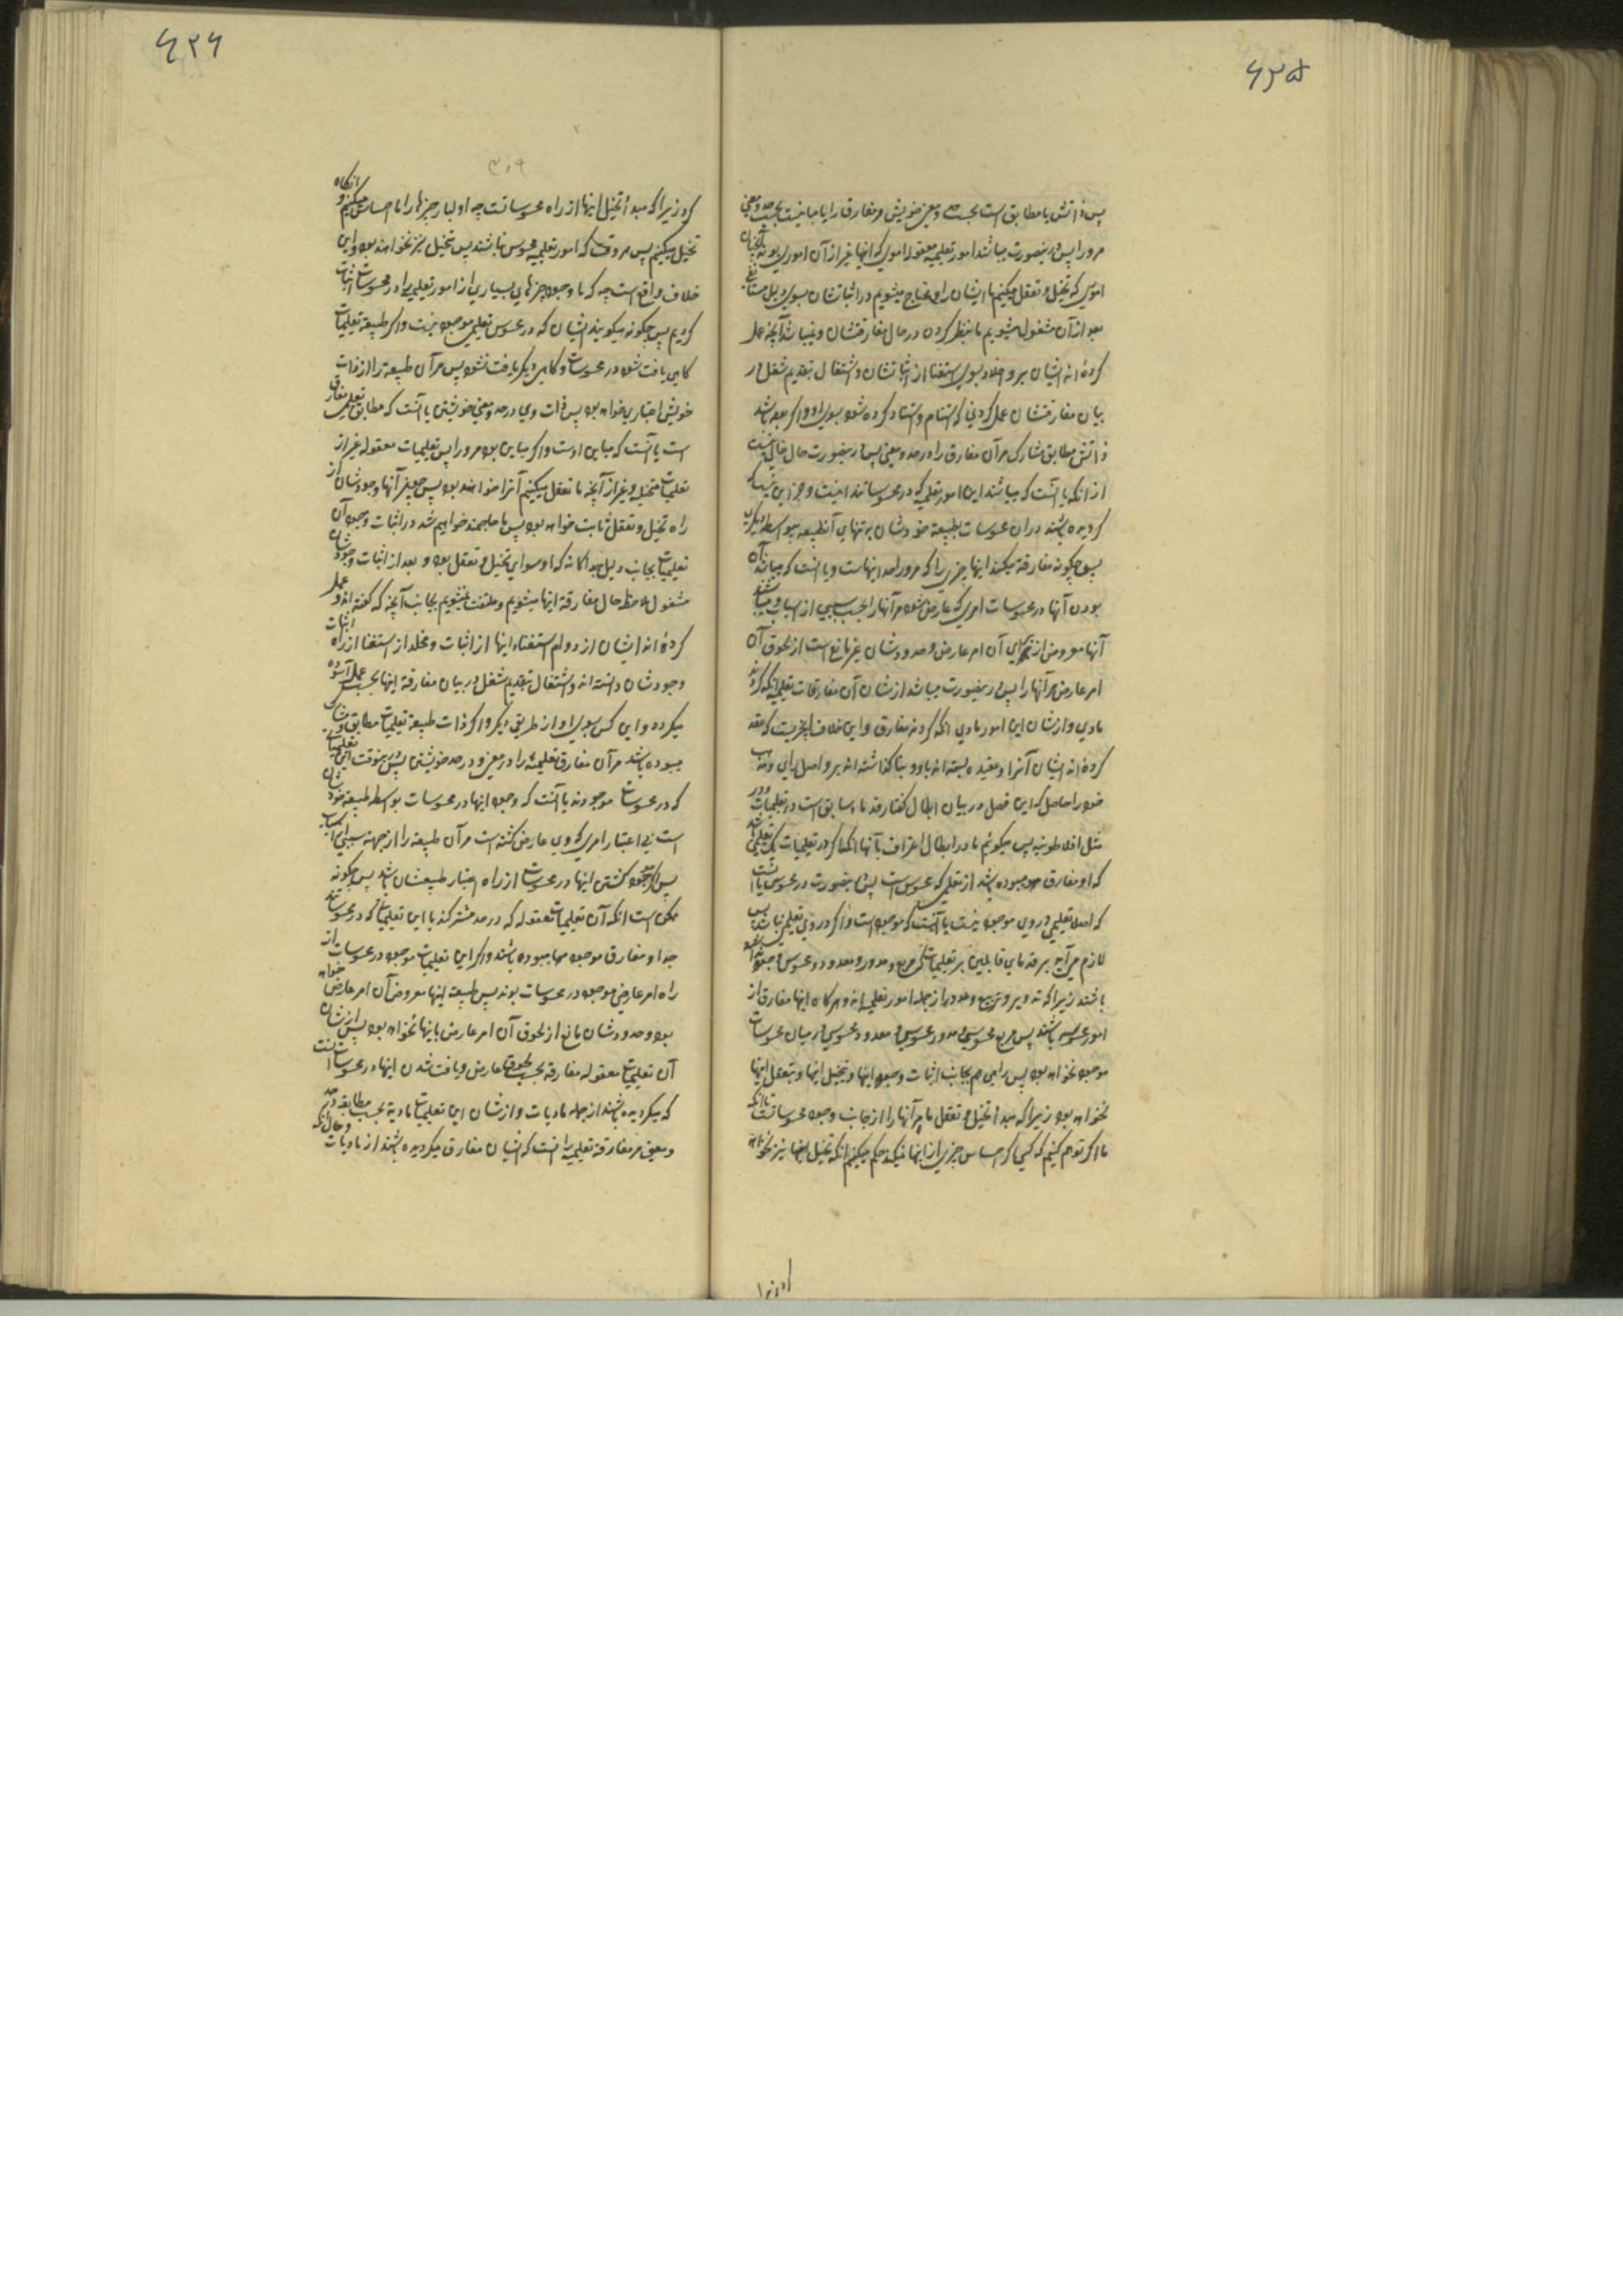 ۶۳۵
پس ذاتش یا مطابق است بحسب حد و معنی خویش و مفارق را یا مباینست بحسب حد و معنی
مر او را پس درینصورت میباشند امور تعلیمیه معقوله اموری که اینها غیر از آن اموری بوند
اموری که تخیل و تعقل میکنیم ما ایشان را و محتاج میشویم در اثباتشان بسوی دلیل مستانف
بعد از آن مشغول میشویم ما بنظر کردن در حال مفارقتشان و نمیباشد آنچه عمل
کرده‌اند ایشان بر و اخلاد بسوی استغنا از اثباتشان و اشتغال بتقدیم شغل در
بیان مفارقتشان عمل کردنی که استنام و استناد کرده شود بسوی او و اگر بوده باشد
ذاتش مطابق مشارک مر آن مفارق را در حد و معنی پس درینصورت حال خالی نیست
از آنکه یا آنست که میباشند این امور تعلیمیه که در محسوساتند
کردیده باشند در آن محسوسات بطبیعه خودشان
پس چگونه مفارقة میکند اینها چیزی را که مر او را حد اینهاست و یا آنست که میباشد
بودن آنها در محسوسات امری که عارض شود مر آنها را بحسب سببی از اسباب و میباشند
آنها معروض از برای آن امر عارض و حدودشان غیر مانع است از لحوق آن
امر عارض مر آنها را پس درینصورت میباشد از شان آن مفارقات تعلیمیه آنکه کردند
مادی و از شان این امور مادی آنکه کردند مفارق و این خلاف آنچیزیست که عقد
کرده‌اند ایشان آنرا و عقیده بسته‌اند باو و بنا گذاشته‌اند بر و اصل رای و مذهب
خود را حاصل که این فصل در بیان ابطال گفتار قدماء سابق است در تعلیمات و در
مثل افلاطونیه پس میگوئیم ما در ابطال اعتراف بآنها آنکه اگر در تعلیمیات یک تعلیمی باشد
که او مفارق بوده باشد از تعلیمی که محسوس است پس درینصورت در محسوس یا آنست
که اصلا تعلیمی در وی موجود نیست یا آنست که موجود است و اگر در وی تعلیمی نباشد پس
لازم می‌آید بر قدمای قائلین بر تعلیمیات که مربع و مدور و معدود و محسوس موجود نبوده
باشند زیرا که تدویر و تربیع و عدد از جمله امور تعلیمیه‌اند و هرگاه اینها مفارق از
امور محسوسه باشند پس مربع محسوسی و مدور محسوسی و معدود محسوسی در میان محسوسات
موجود نخواهد بود پس راهی هم بجانب اثبات وجود اینها و تخیل اینها و تعقل اینها
نخواهد بود زیرا که مبدا تخیل و تعقل ما مر آنها را از جانب وجود محسوساتست تا آنکه
ما اگر توهم کنیم که کسی که احساس چیزی از اینها نمیکند حکم میکنیم آنکه تخیل اینها نیز نخواهد
۶۳۶
کرد زیرا که مبدا تخیل اینها از راه محسوساتست چه اولا چیزها را ما احساس میکنیم و آنگاه
تخیل میکنیم پس هر وقت که امور تعلیمیه محسوس نباشند پس تخیل نیز نخواهند بود و این
خلاف واقع است چه که ما وجود چیزهای بسیاری از امور تعلیمیه را در محسوسات اثبات
کردیم پس چگونه میگویند ایشان که در محسوس تعلیمی موجود نیست و اگر طبیعة تعلیمات
گاهی یافت شود در محسوسات و گاهی دیگر یافت نشود پس مر آن طبیعة را از ذات
خویش اعتباری خواهد بود پس ذات وی در حد و معنی خویشتن یا آنست که مطابق تعلیمی مفارق
است یا آنست که مباین اوست و اگر مباین بود مر او را پس تعلیمیات معقوله غیر از
تعلیمیات متخیله و غیر از آنچه ما تعقل میکنیم آنرا خواهند بود
راه تخیل و تعقل ثابت خواهد بود پس ما محتاج خواهیم شد در اثبات وجود آن
تعلیمیات بجانب دلیل جداگانه که او سوای تخیل و تعقل بود و بعد از اثبات وجودشان
مشغول ملاحظه حال مفارقة اینها میشویم و ملتفت نمیشویم بجانب آنچه که گفته‌اند و عمل
کرده‌اند ایشان از دوام استغناء اینها از اثبات و مخلد از استغنا از راه اثبات
وجودشان دانسته‌اند و اشتغال بتقدیم شغل در بیان مفارقة اینها بحسب عمل آسوده
میکردد و این کس بسوی او از طریق دیگر و اگر ذات طبیعة تعلیمیات مطابق و مشارک
میبوده باشد مر آن مفارق تعلیمیه را در معنی و در حد خویشتن پس درینوقت این تعلیمیات
که در محسوسات موجودند یا آنست که وجود اینها در محسوسات بواسطه طبیعة خودشان
است نه باعتبار امری که وی عارض گشته است مر آن طبیعة را از جهة سببی از اسباب
پس اگر موجود گشتن اینها در محسوسات از راه اعتبار طبیعتشان باشد پس چگونه
ممکن است آنکه آن تعلیمیات معقوله که در حد مشترکند با این تعلیمیاتی که در محسوساتند
جدا و مفارق موجود مهما میبوده باشند و اگر این تعلیمیات موجود در محسوسات از
راه امر عارضی موجود در محسوسات بوند پس طبیعة اینها معروض آن امر عارض خواهد
بود و حدودشان مانع از لحوق آن امر عارض باینها نخواهد بود پس از شان
آن تعلیمیات معقوله مفارقه بحسب لحوق عارض و یافت شدن اینها در محسوسات آنست
که میکردیده باشند از جمله مادیات و از شان این تعلیمیات مادیة بحسب مطابقه در حد
و معنی مر مفارقة تعلیمیه را آنست که ایشان مفارق میکردیده باشند از مادیات و حال آنکه